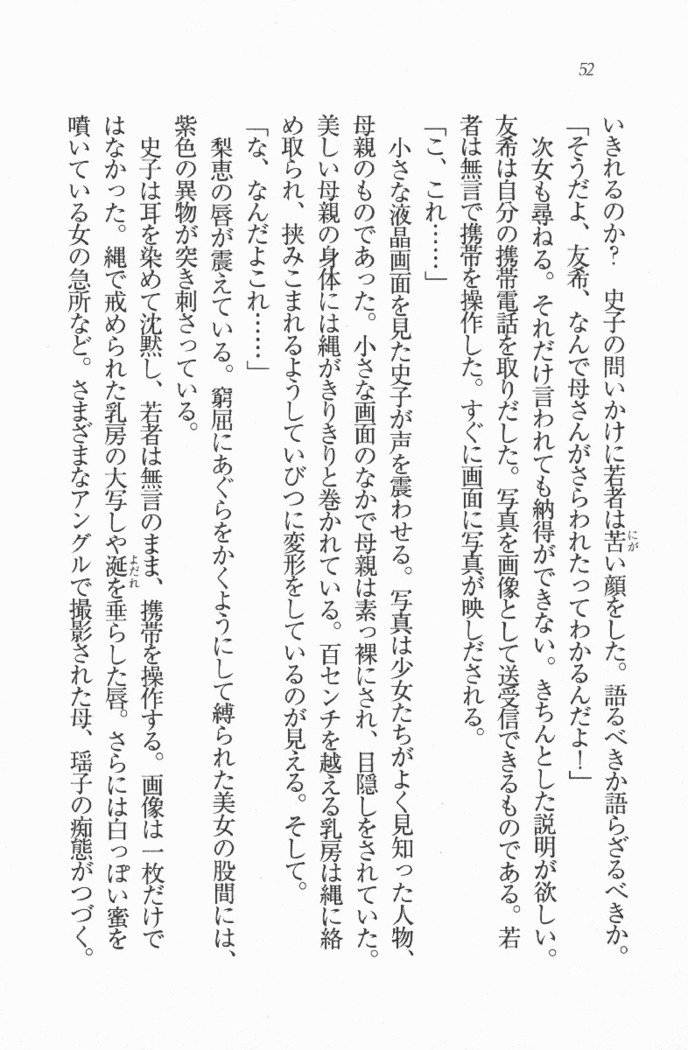 52
いきれるのか？　史子の問いかけに若者は苦い顔をした。語るべきか語らざるべきか。
「そうだよ、友希、なんで母さんがさらわれたってわかるんだよ！」
　次女も尋ねる。それだけ言われても納得ができない。きちんとした説明が欲しい。
友希は自分の携帯電話を取りだした。写真を画像として送受信できるものである。若
者は無言で携帯を操作した。すぐに画面に写真が映しだされる。
「こ、これ……」
　小さな液晶画面を見た史子が声を震わせる。写真は少女たちがよく見知った人物、
母親のものであった。小さな画面のなかで母親は素っ裸にされ、目隠しをされていた。
美しい母親の身体には縄がきりきりと巻かれている。百センチを越える乳房は縄に絡
め取られ、挟みこまれるようしていびつに変形をしているのが見える。そして。
「な、なんだよこれ……」
　梨恵の唇が震えている。窮屈にあぐらをかくようにして縛られた美女の股間には、
紫色の異物が突き刺さっている。
　史子は耳を染めて沈黙し、若者は無言のまま、携帯を操作する。画像は一枚だけで
はなかった。縄で戒められた乳房の大写しや涎を垂らした唇。さらには白っぽい蜜を
噴いている女の急所など。さまざまなアングルで撮影された母、瑶子の痴態がつづく。